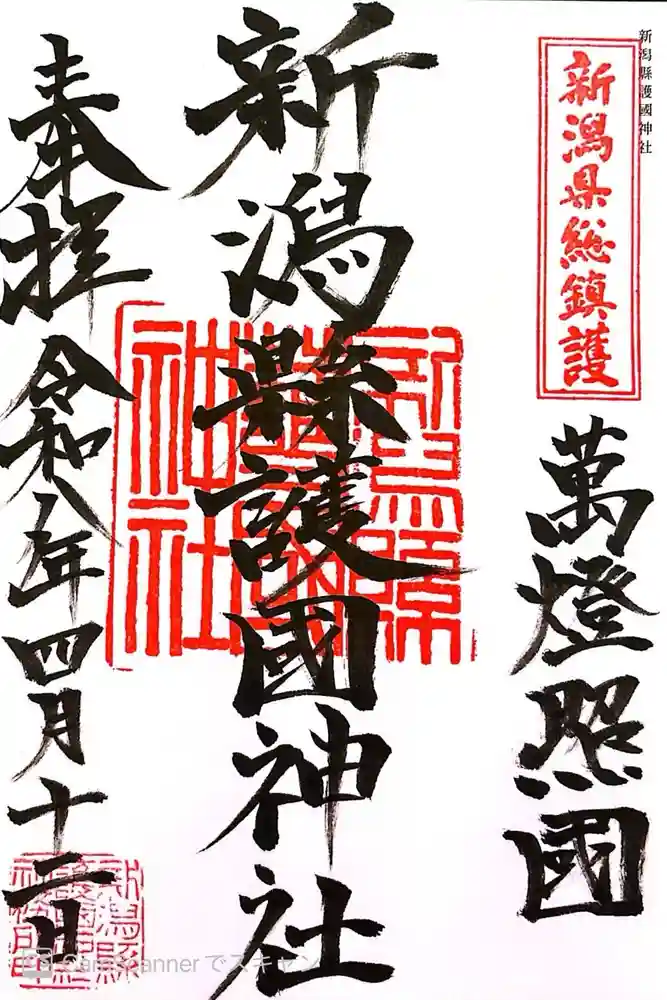 新潟縣護國神社
新潟県総鎮護
萬燈照國
新潟縣護國神社
奉拝
令和八年四月十二日
CamScannerでスキャン